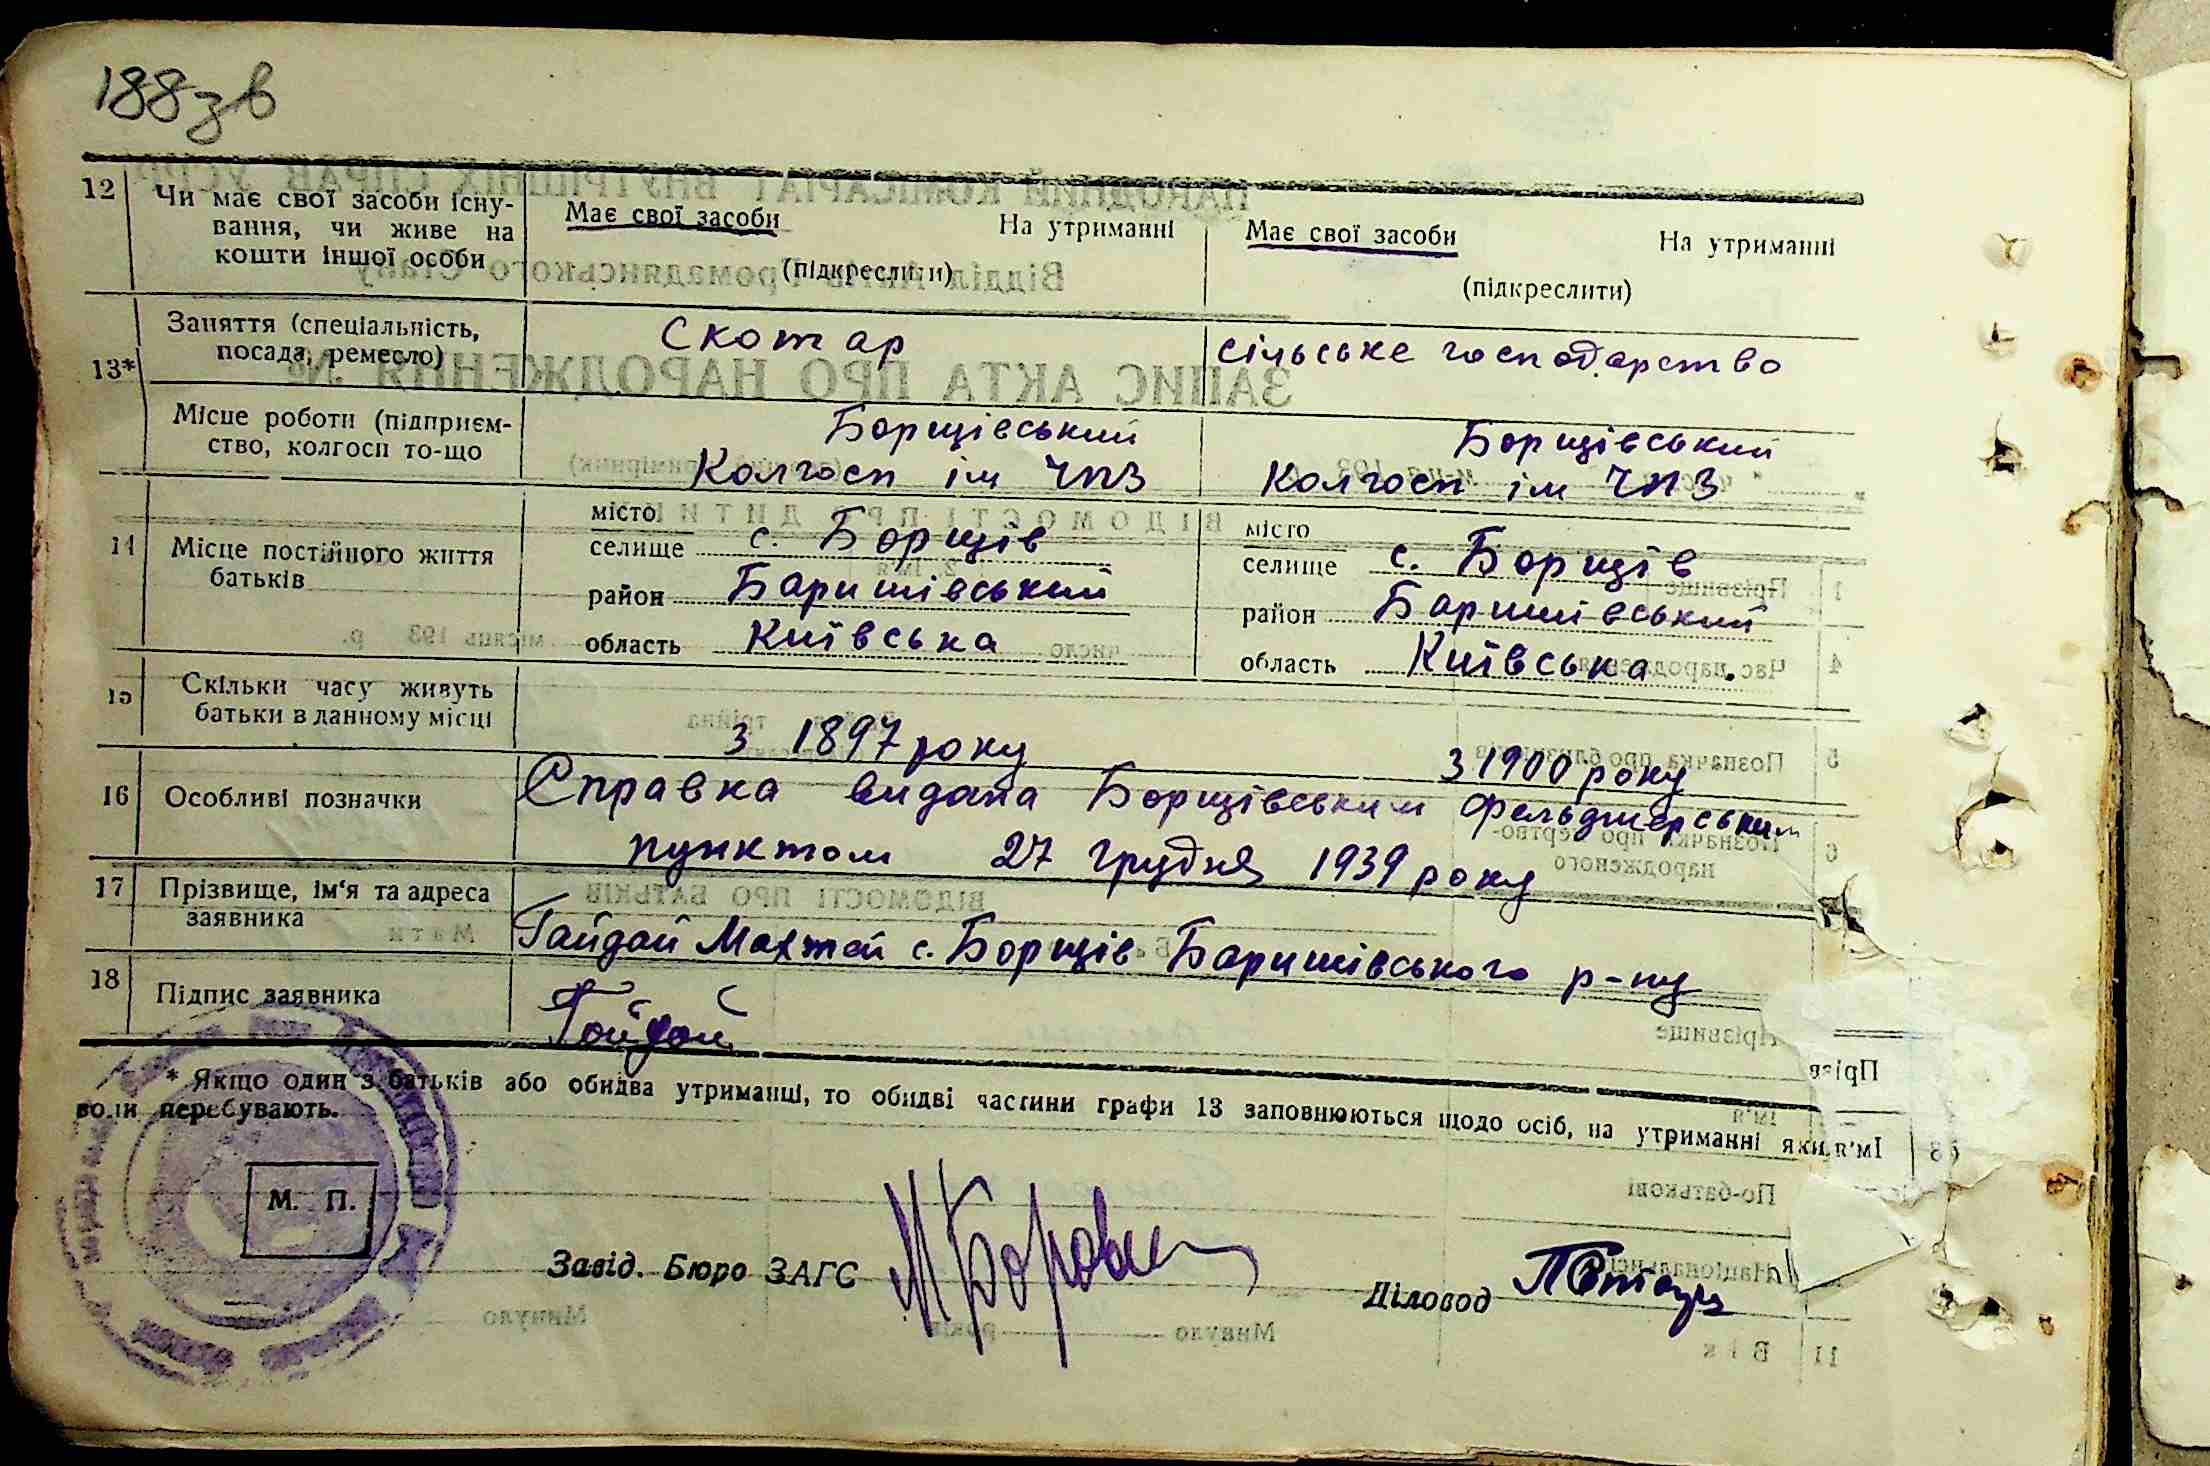 188зв
12 Чи має свої засоби існу-
вання, чи живе на
кошти іншої особи
Має свої засоби На утриманні
(підкреслити)
Має свої засоби На утриманні
(підкреслити)
13* Заняття (спеціальність,
посада, ремесло)
Скотар
сільське господарство
Місце роботи (підприєм-
ство, колгосп то-що
Борщівський
Колгосп ім ЧПЗ
Борщівський
Колгосп ім ЧПЗ
14 Місце постійного життя
батьків
місто
селище с. Борщів
район Баришівський
область Київська
місто
селище с. Борщів
район Баришівський
область Київська.
15 Скільки часу живуть
батьки в данному місці
з 1897 року
з 1900 року
16 Особливі позначки
Справка видана Борщівським фельдшерським
пунктом 27 грудня 1939 року
17 Прізвище, ім'я та адреса
заявника
Гайдай Мах��тей с. Борщів Баришівського р-ну
18 Підпис заявника
Гайдай
* Якщо один з батьків або обидва утриманці, то обидві частини графи 13 заповнюються щодо осіб, на утриманні яких
вони перебувають.
М. П.
Завід. Бюро ЗАГС
Діловод